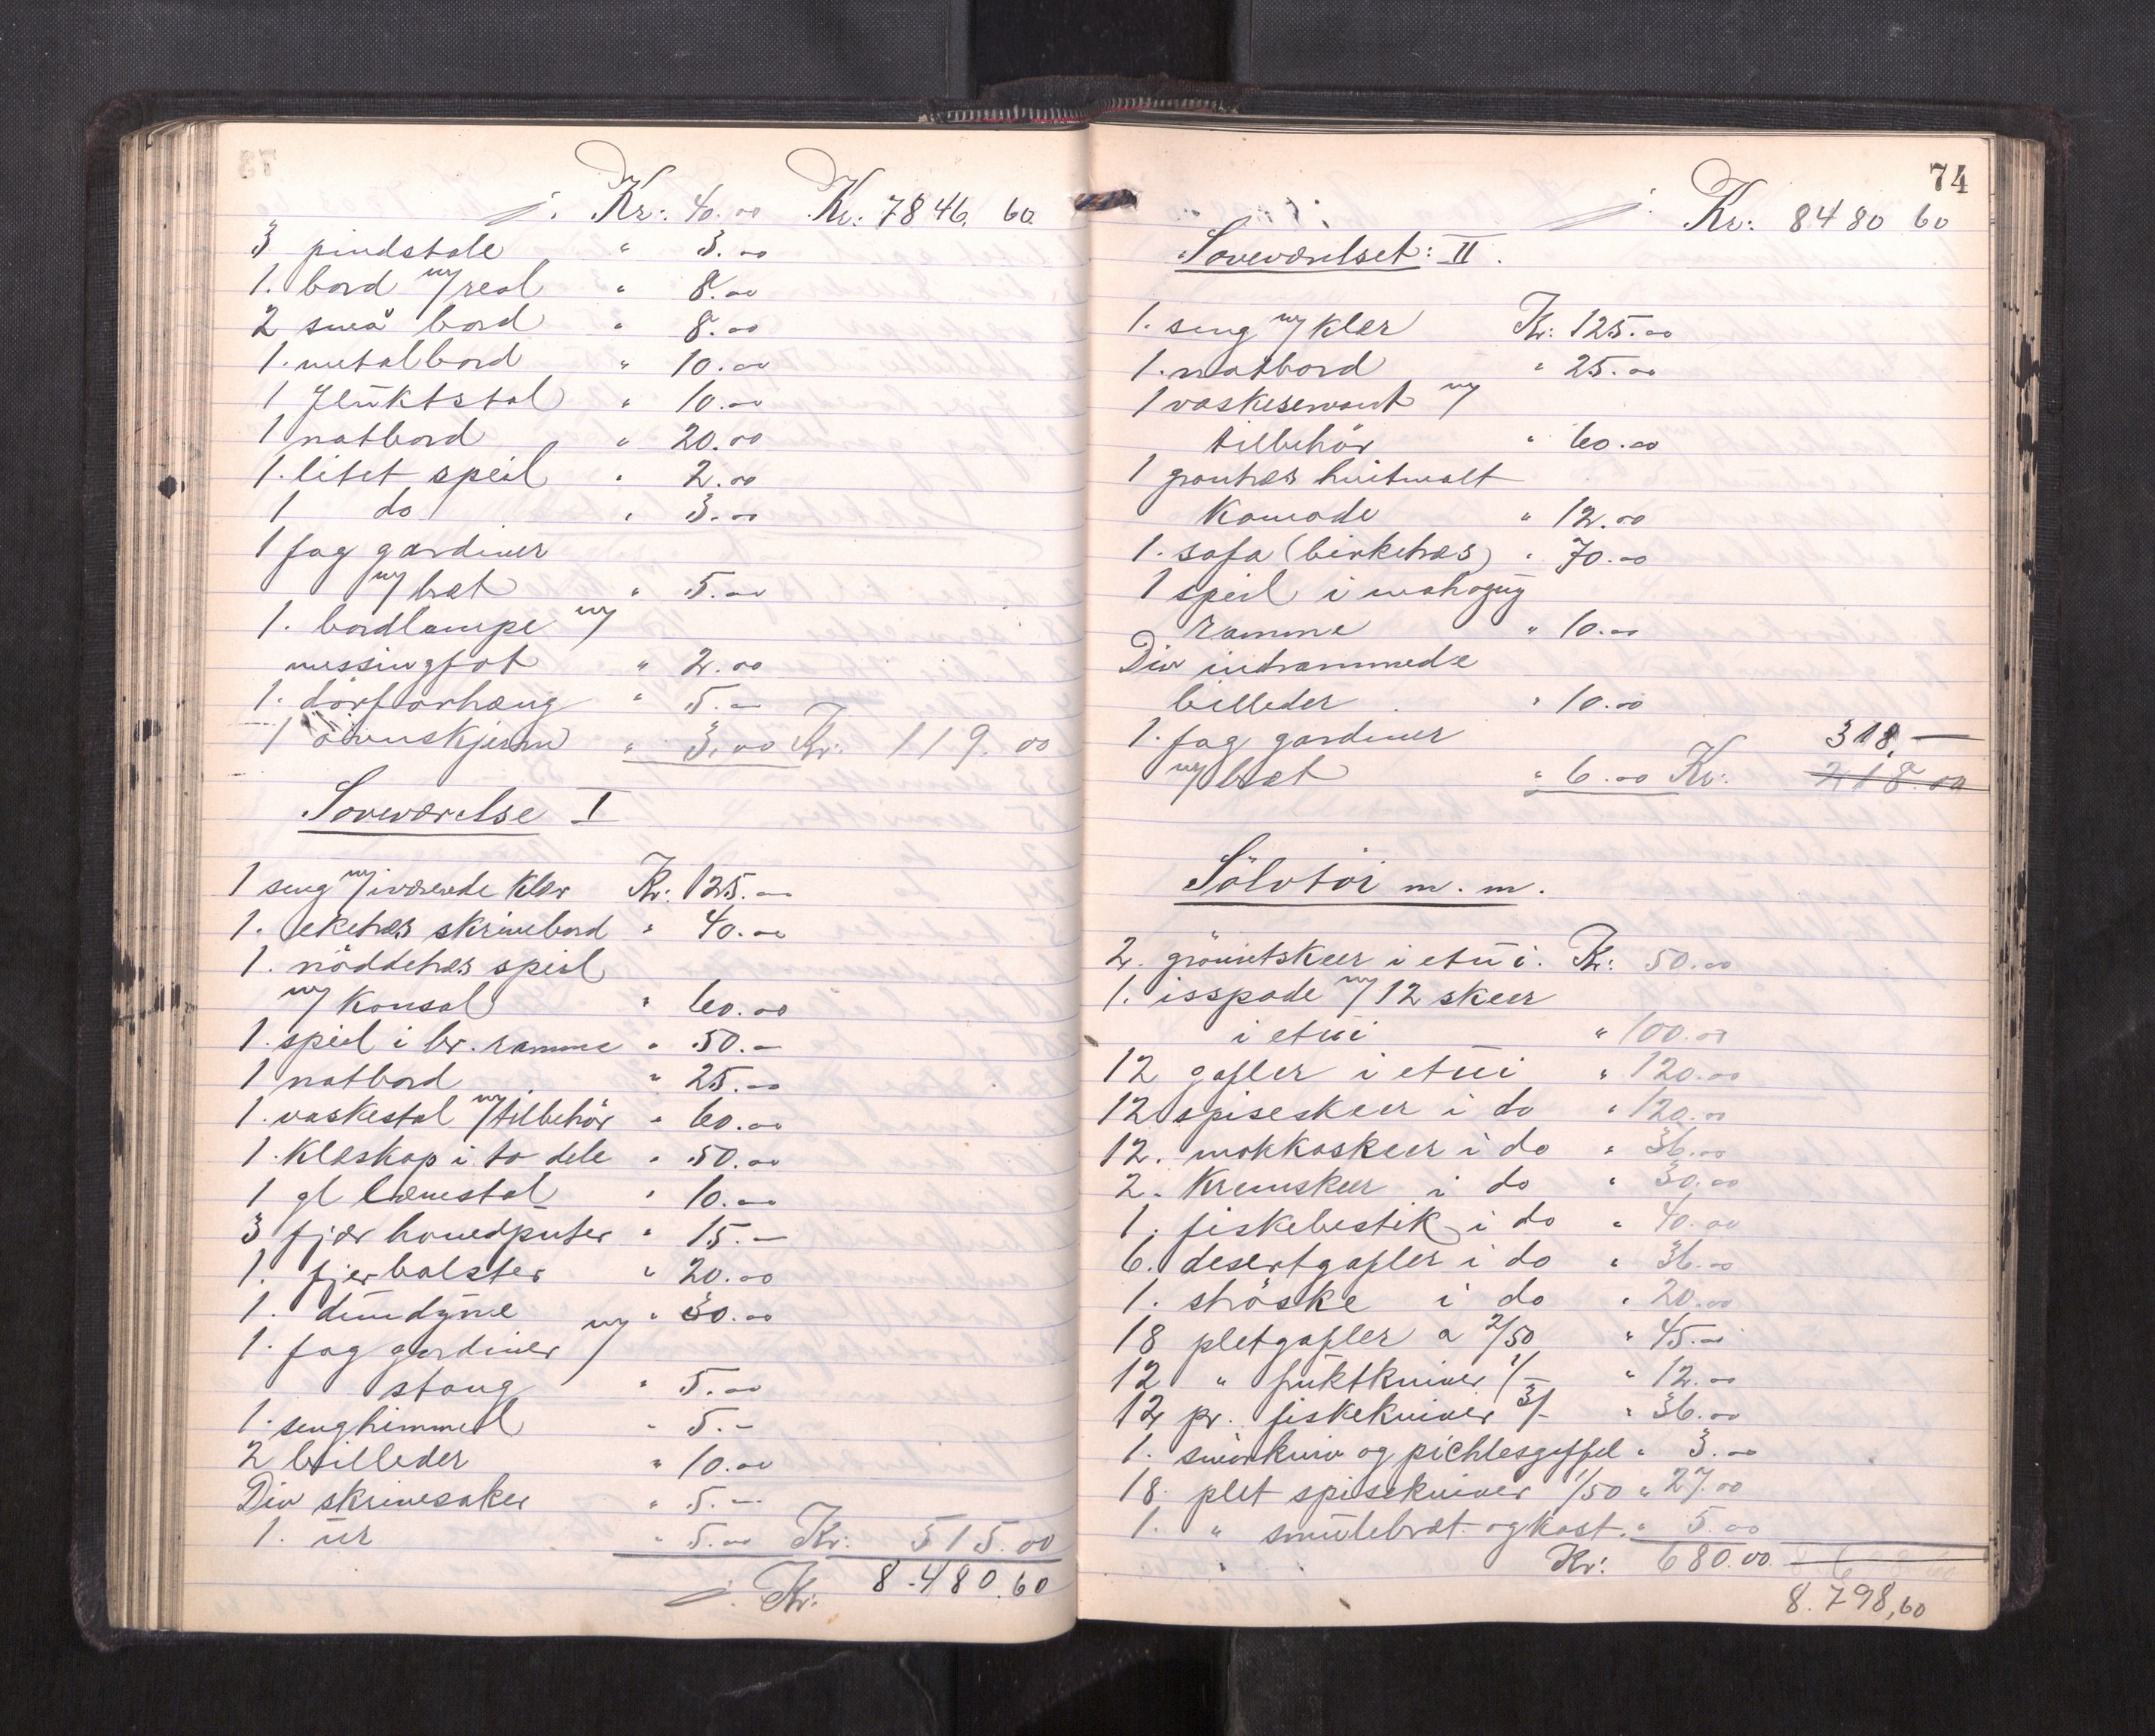 j. Kr: 40.00 Kr: 7846.60
3 pindstole " 3.00
1. bord m/ reol " 8.00
2 små bord " 8.00
1. metalbord " 10.00
1 flüktstol " 10.00
1 natbord " 20.00
1. litet speil " 2.00
1 do " 3.00
1 fag gardiner
m/ bræt " 5.00
1. bordlampe m/
messingfot " 2.00
1. dörforhæng " 5.—
1 ovnskjerm " 3.00 Kr: 119.00
Soveværelse I
1 seng m/ iværende klær Kr: 125.—
1. eketræs skrivebord " 40.00
1. nöddetræs speil
m/ konsol " 60.00
1. speil i br. ramme " 50.—
1 natbord " 25.00
1. vaskestol m/ tilbehör " 60.00
1. klæskap i to dele " 50.00
1 gl lænestol " 10.00
3 fjær hovedputer " 15.—
1. fjerbolster " 20.00
1. dündyne " 30.00
1. fag gardiner m/
stang " 5.00
1. senghimmel " 5.—
2 billeder " 10.00
Div skrivesaker " 5.—
1. ür " 5.00 Kr: 515.00
j. Kr: 8.480.60
74
j. Kr: 8480 60
Soveværelset: II.
1. seng m/ klær Kr: 125.00
1. natbord " 25.00
1 vaskeservant m/
tilbehör " 60.00
1 grantræs hvitmalt
Komode " 12.00
1. sofa (birketræs) " 70.00
1 speil i mahogny
ramme " 10.00
Div indrammede
billeder " 10.00
1. fag gardiner 318,—
m/ bræt " 6.00 Kr: 218.00
Sölvtöi m. m.
2. grönnetskeer i etüi. Kr: 50.00
1. isspade m/ 12 skeer
i etüi " 100.00
12 gafler i etüi " 120.00
12 spiseskeer i do " 120.00
12. mokkaskeer i do " 36.00
2. Kremskeer i do " 30.00
1. fiskebestik i do " 40.00
6. desertgafler i do " 36.00
1. ströske i do " 20.00
18 pletgafler a 2/50 " 45.00
12 " früktkniver 1/— " 12.00
12 pr. fiskekniver 3/— " 36.00
1. smörkniv og pichlesgaffel " 3.00
18 plet spisekniver 1/50 " 27.00
1. " smülebræt og kost. " 5.00
Kr: 680.00
8.798,60